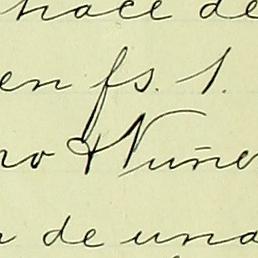 hace de
en fs. 1.
ro & Nuñe
de una